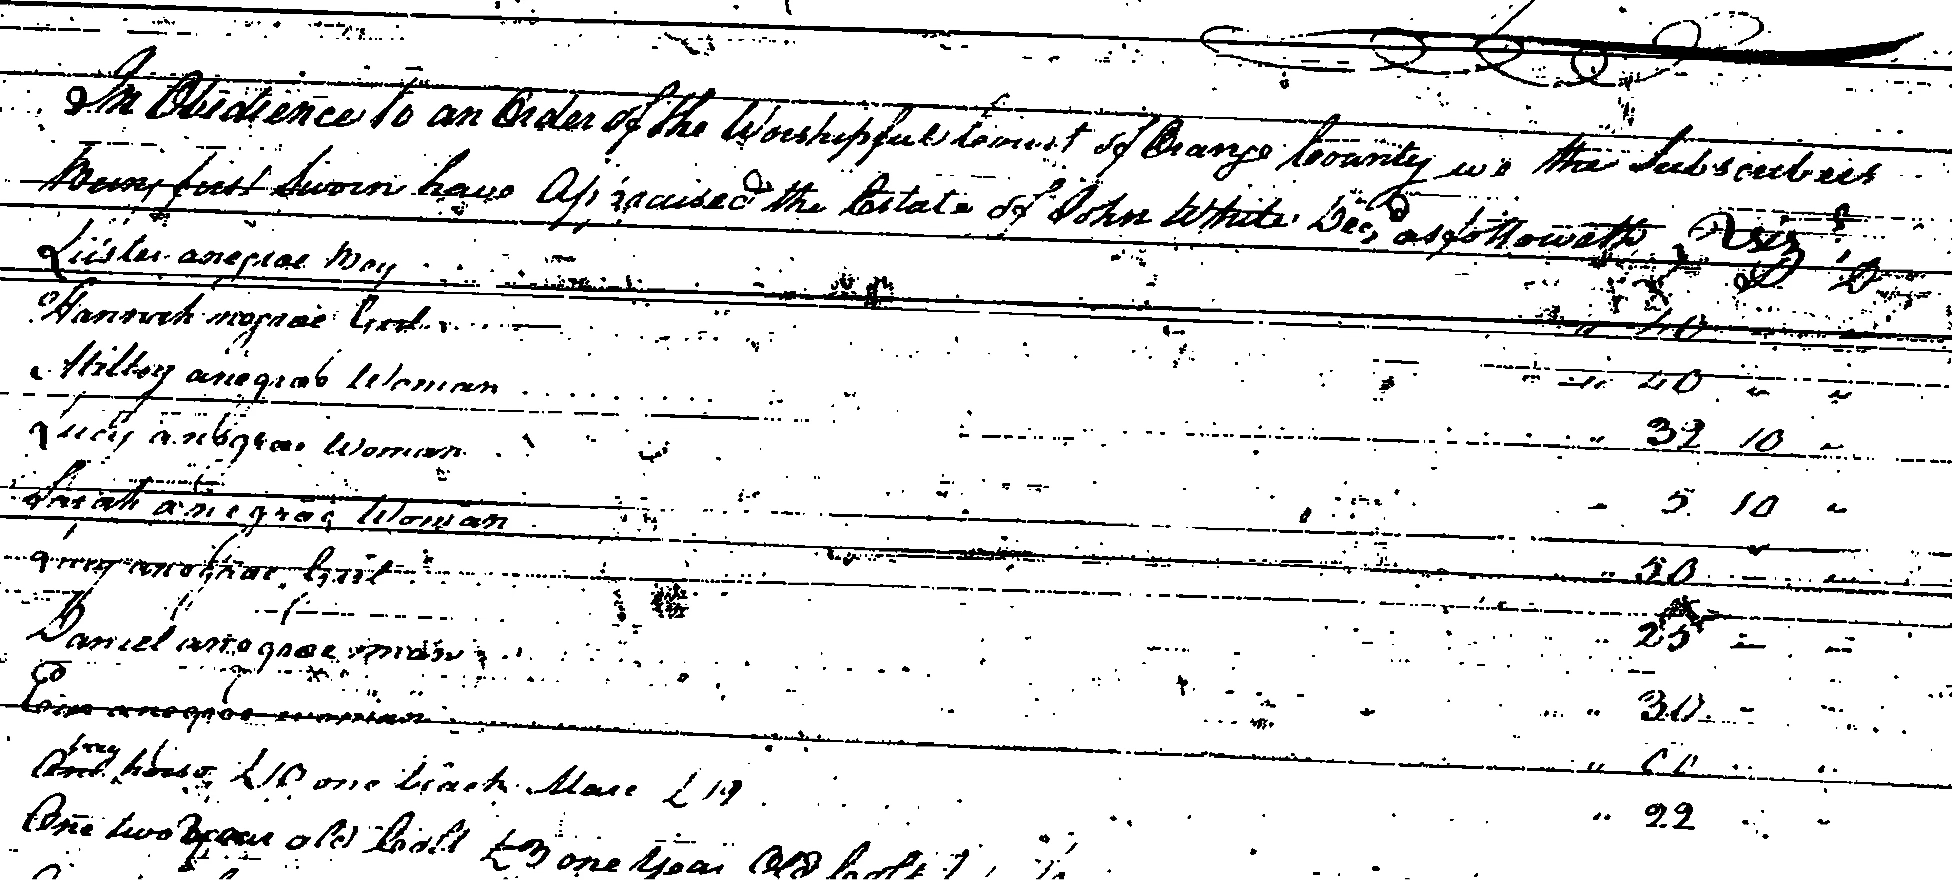 In Obedience to an Order of the Worshipful Court of Orange County we the Subscribers
being first Sworn have Appraised the Estate of John White Decd as followeth Viz
anegroe boy 40 " "
Hannah negroe Girl 40 " "
Milley anegroe Woman 32 10 "
Lucy anegroe Woman 5 10 "
Sarah anegroe Woman 50 " "
anegroe Girl 25 " "
Daniel anegroe man 30 " "
anegroe woman
One Gray horse £10 one black Mare £19 22
One two Year old Colt £3 one Year Old Colt